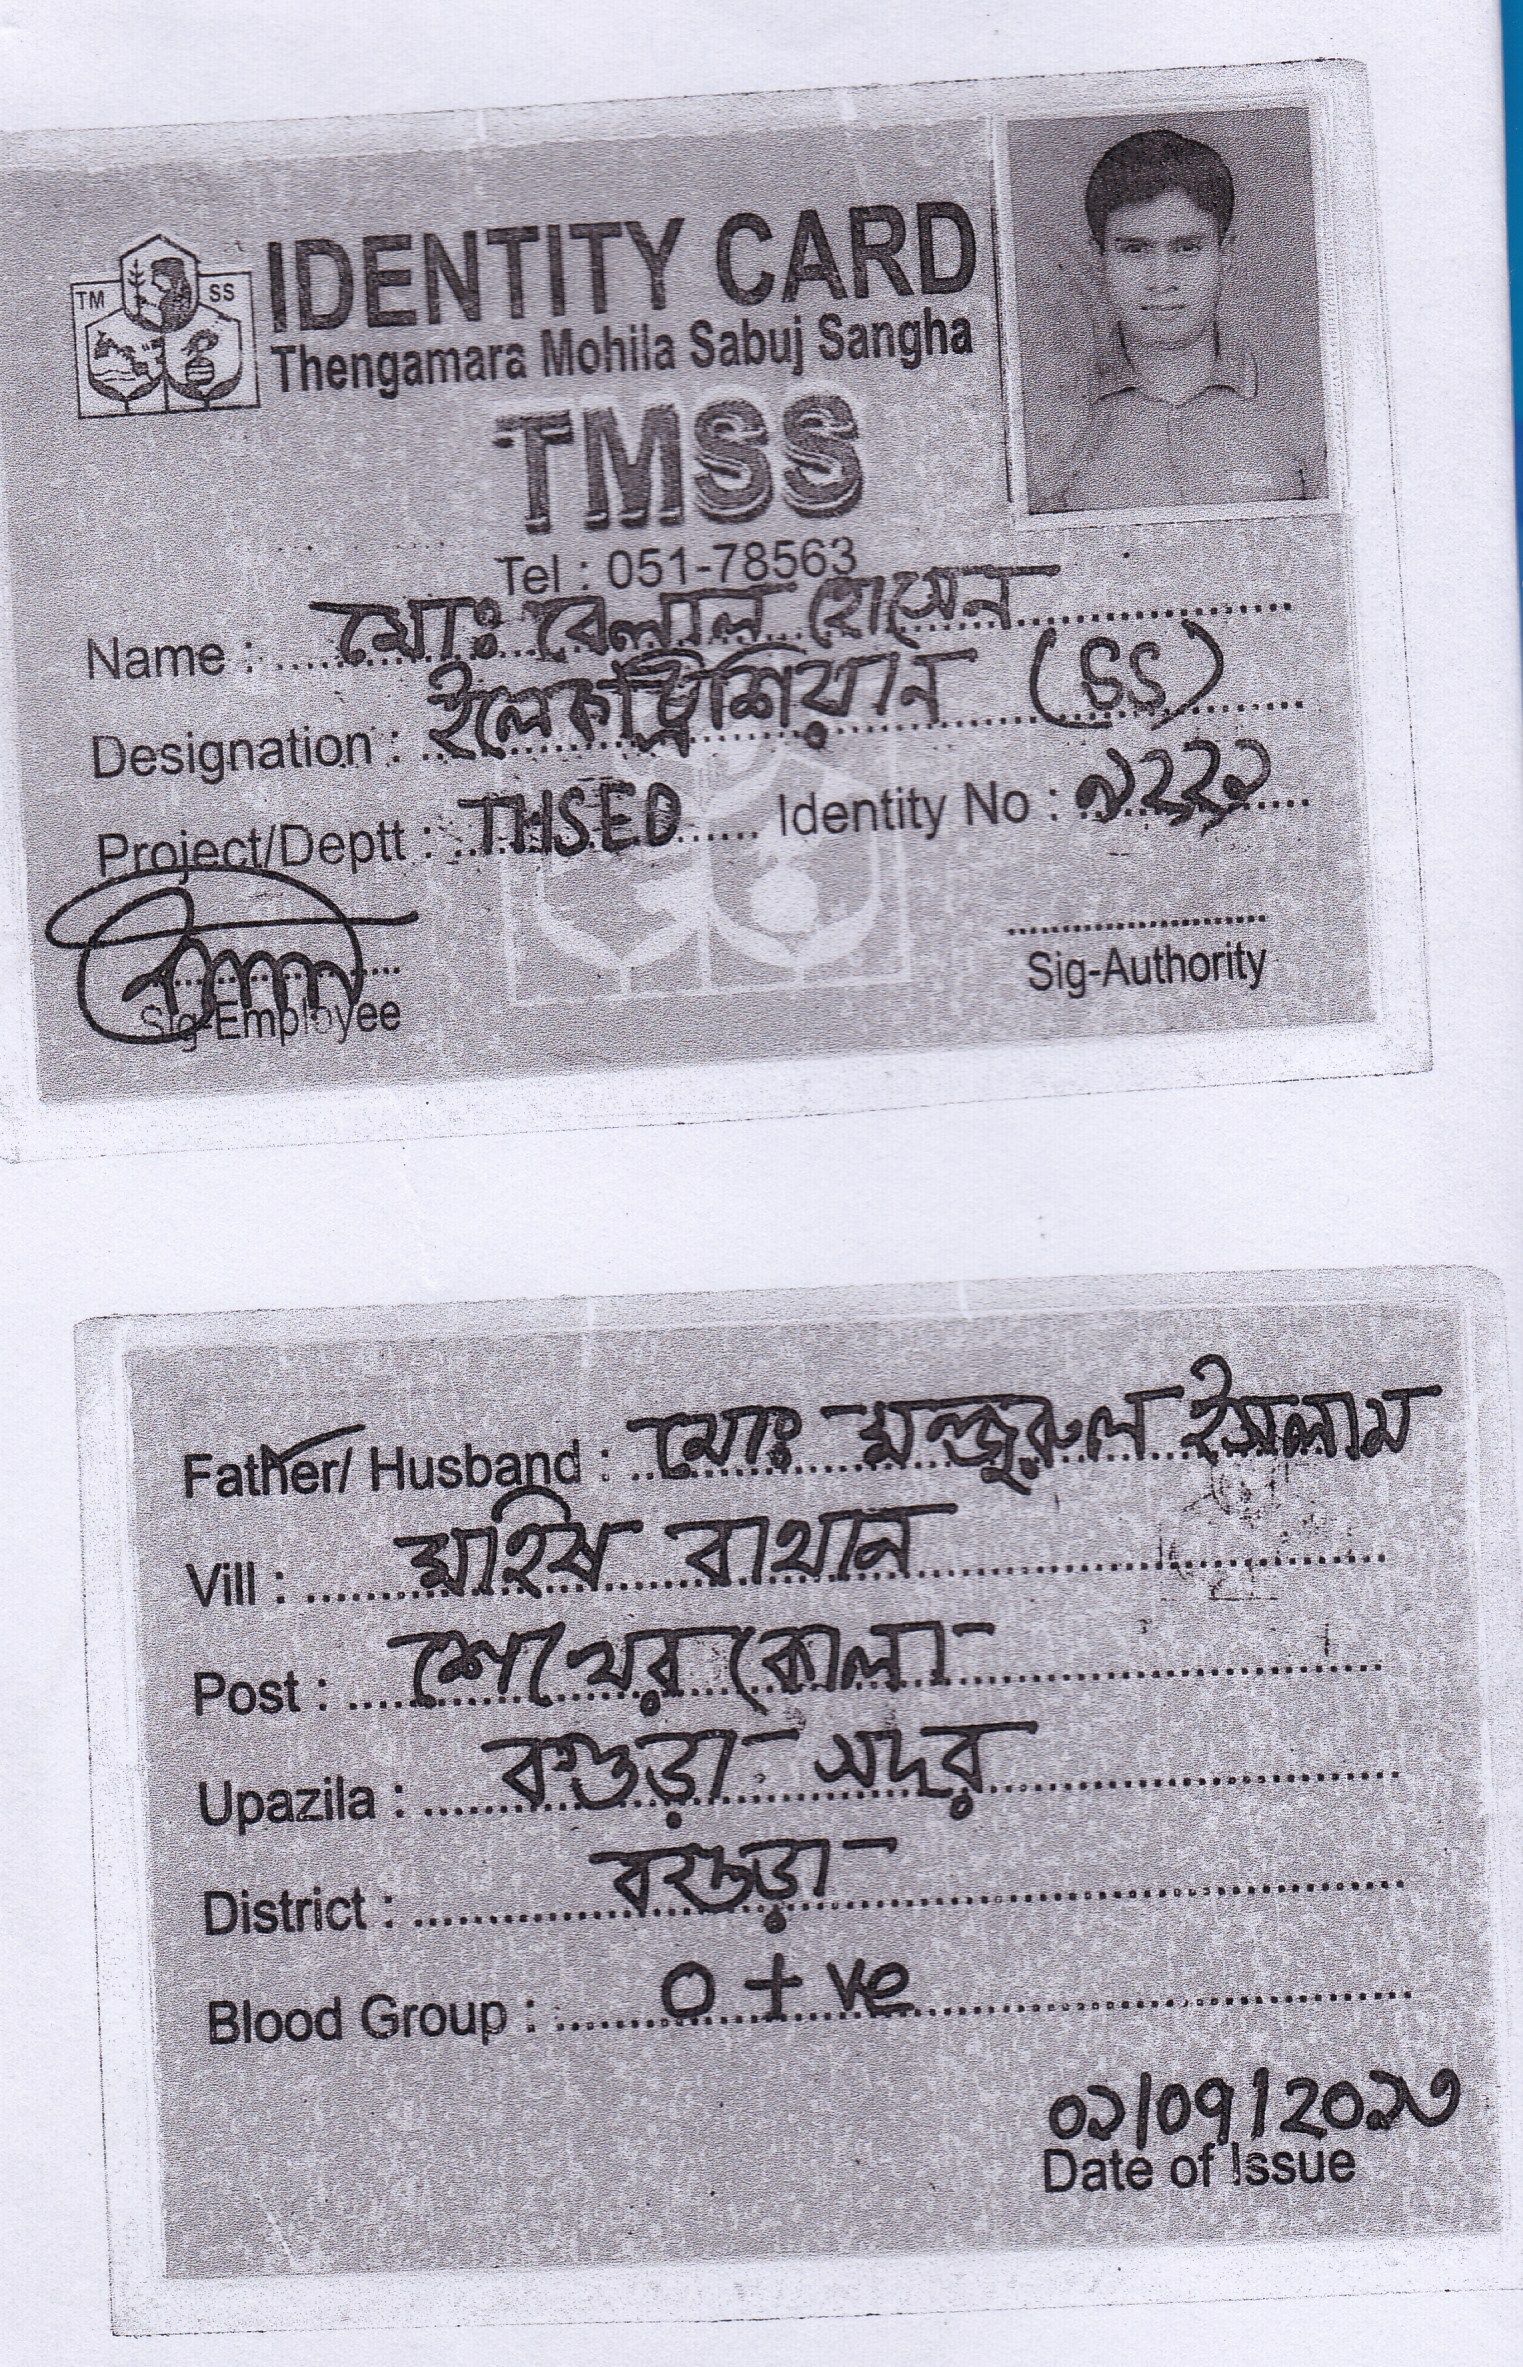 TM SS
IDENTITY CARD
Thengamara Mohila Sabuj Sangha
TMSS
Tel : 051-78563
Name : মোঃ বেলাল হোসেন
Designation : ইলেকট্রিশিয়ান (SS)
Project/Deptt : THSED Identity No : ৯২২১
Sig-Employee
Sig-Authority
Father/ Husband : মোঃ মন্জুরুল ইসলাম
Vill : মহিষ বাথান
Post : শেখের কোলা
Upazila : বগুড়া সদর
District : বগুড়া
Blood Group : O +ve
০১/০৭/২০১৩
Date of Issue